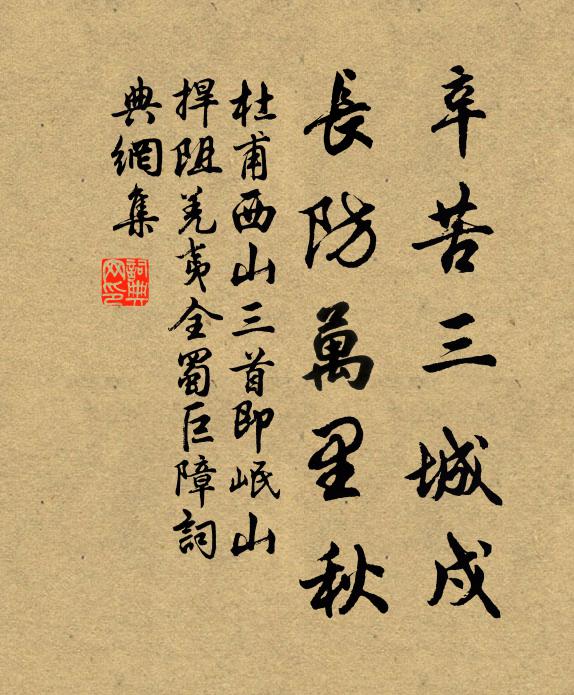 辛苦三城戍
長防萬里秋
杜甫西山三首即岷山
捍阻羌夷全蜀巨障詞
典網集
詞典網印